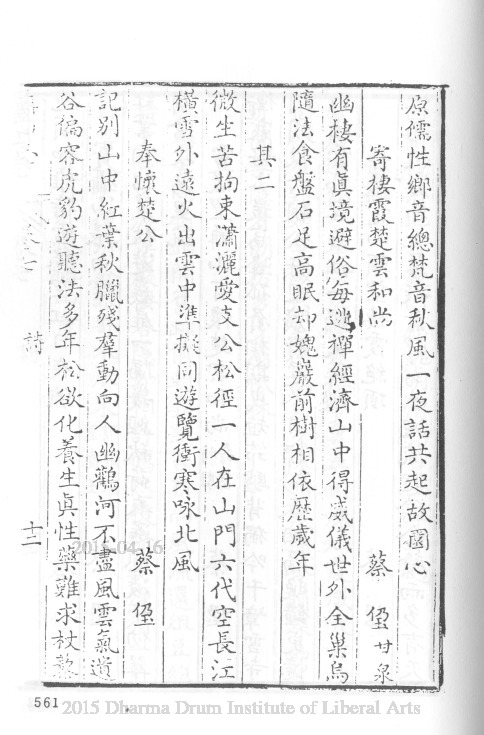 原儒性鄉音總梵音秋風一夜話共起故園心
寄棲霞楚雲和尚 蔡 甘泉
幽棲有真境避俗每逃禪經濟山中得威儀世外全巢烏
隨法食盤石足高眠却媿巖前樹相依歷歲年
其二
微生苦拘束瀟灑愛支公松徑一人在山門六代空長江
橫雪外遠火出雲中準擬同遊覽衝寒咏北風
奉懷楚公 蔡
記別山中紅葉秋臘殘羣動向人幽鸛河不盡風雲氣遺
谷偏容虎豹遊聽法多年松欲化養生真性藥難求杖藜
詩 十二
561
2015-04-16
2015 Dharma Drum Institute of Liberal Arts